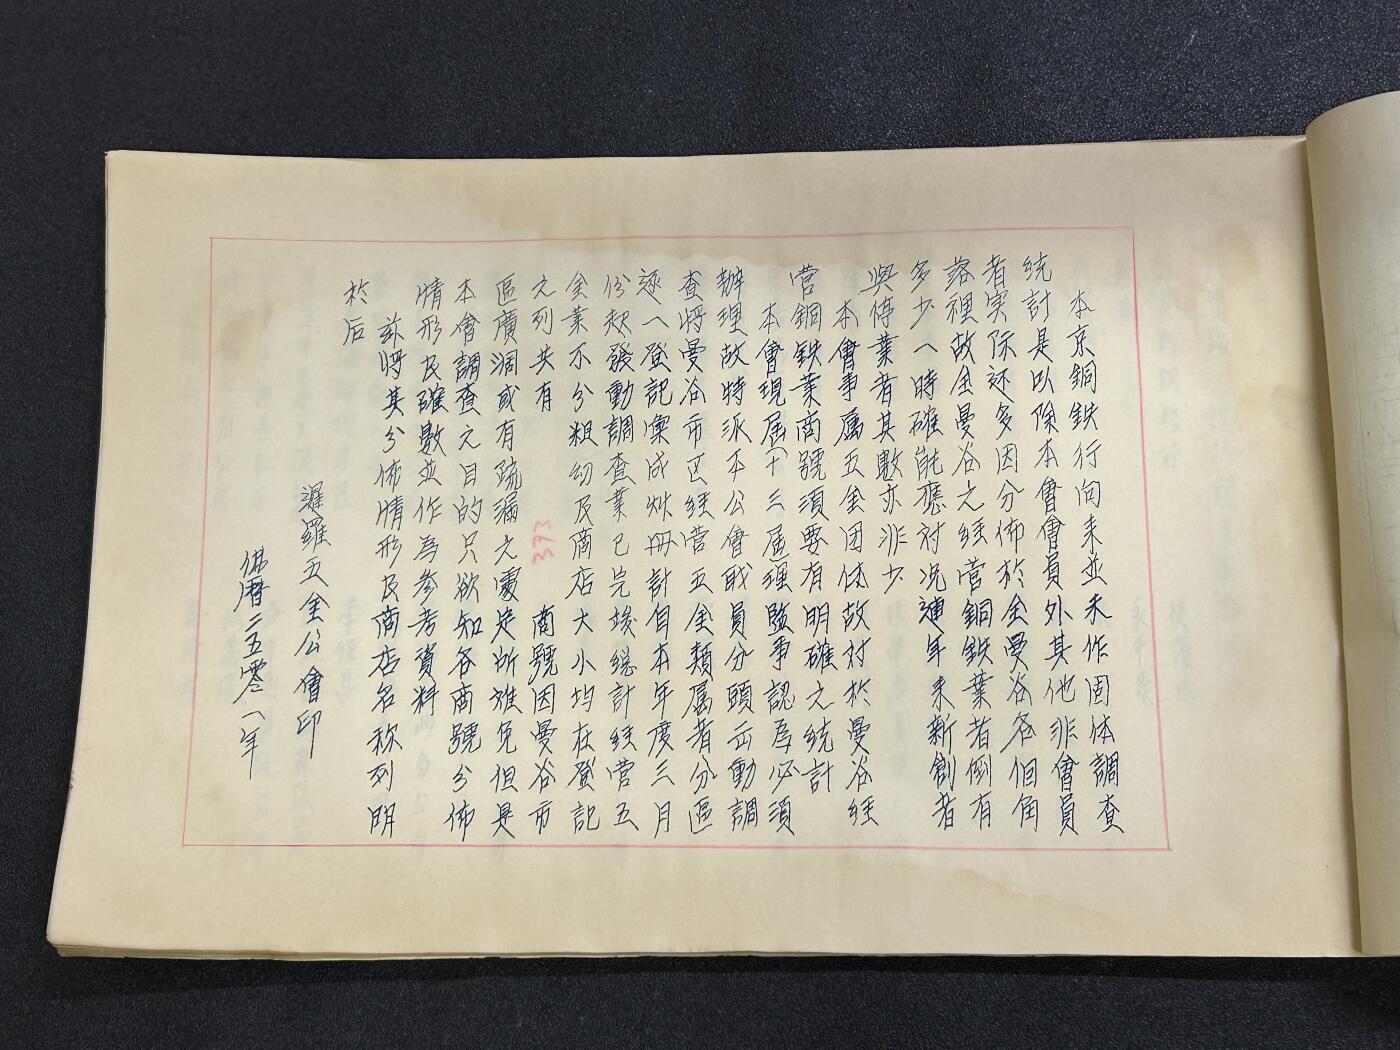 本京銅鉄行向来並未作固体調查
統計是以除本會會員外其他非會員
者実际还多因分佈於全曼谷各個角
落裡故全曼谷之經营銅鉄業者倒有
多少一時確能應对况連年来新創者
與停業者其數亦非少
本會事属五金团体故对於曼谷經
营銅鉄業商號須要有明確之統計
本會現届(十三届)理監事認為必須
辦理故特派本公會職員分頭出動調
查將曼谷市区經营五金類属者分區
逐一登記彙成冊計自本年度三月
份起發動調查業已完竣總計經营五
金業不分粗幼及商店大小均在登記
之列共有 373 商號因曼谷市
區廣濶或有疏漏之處是所难免但是
本會調查之目的只欲知各商號分佈
情形及確數並作為参考資料
兹將其分佈情形及商店名称列明
於后
暹羅五金公會印
佛曆二五零八年